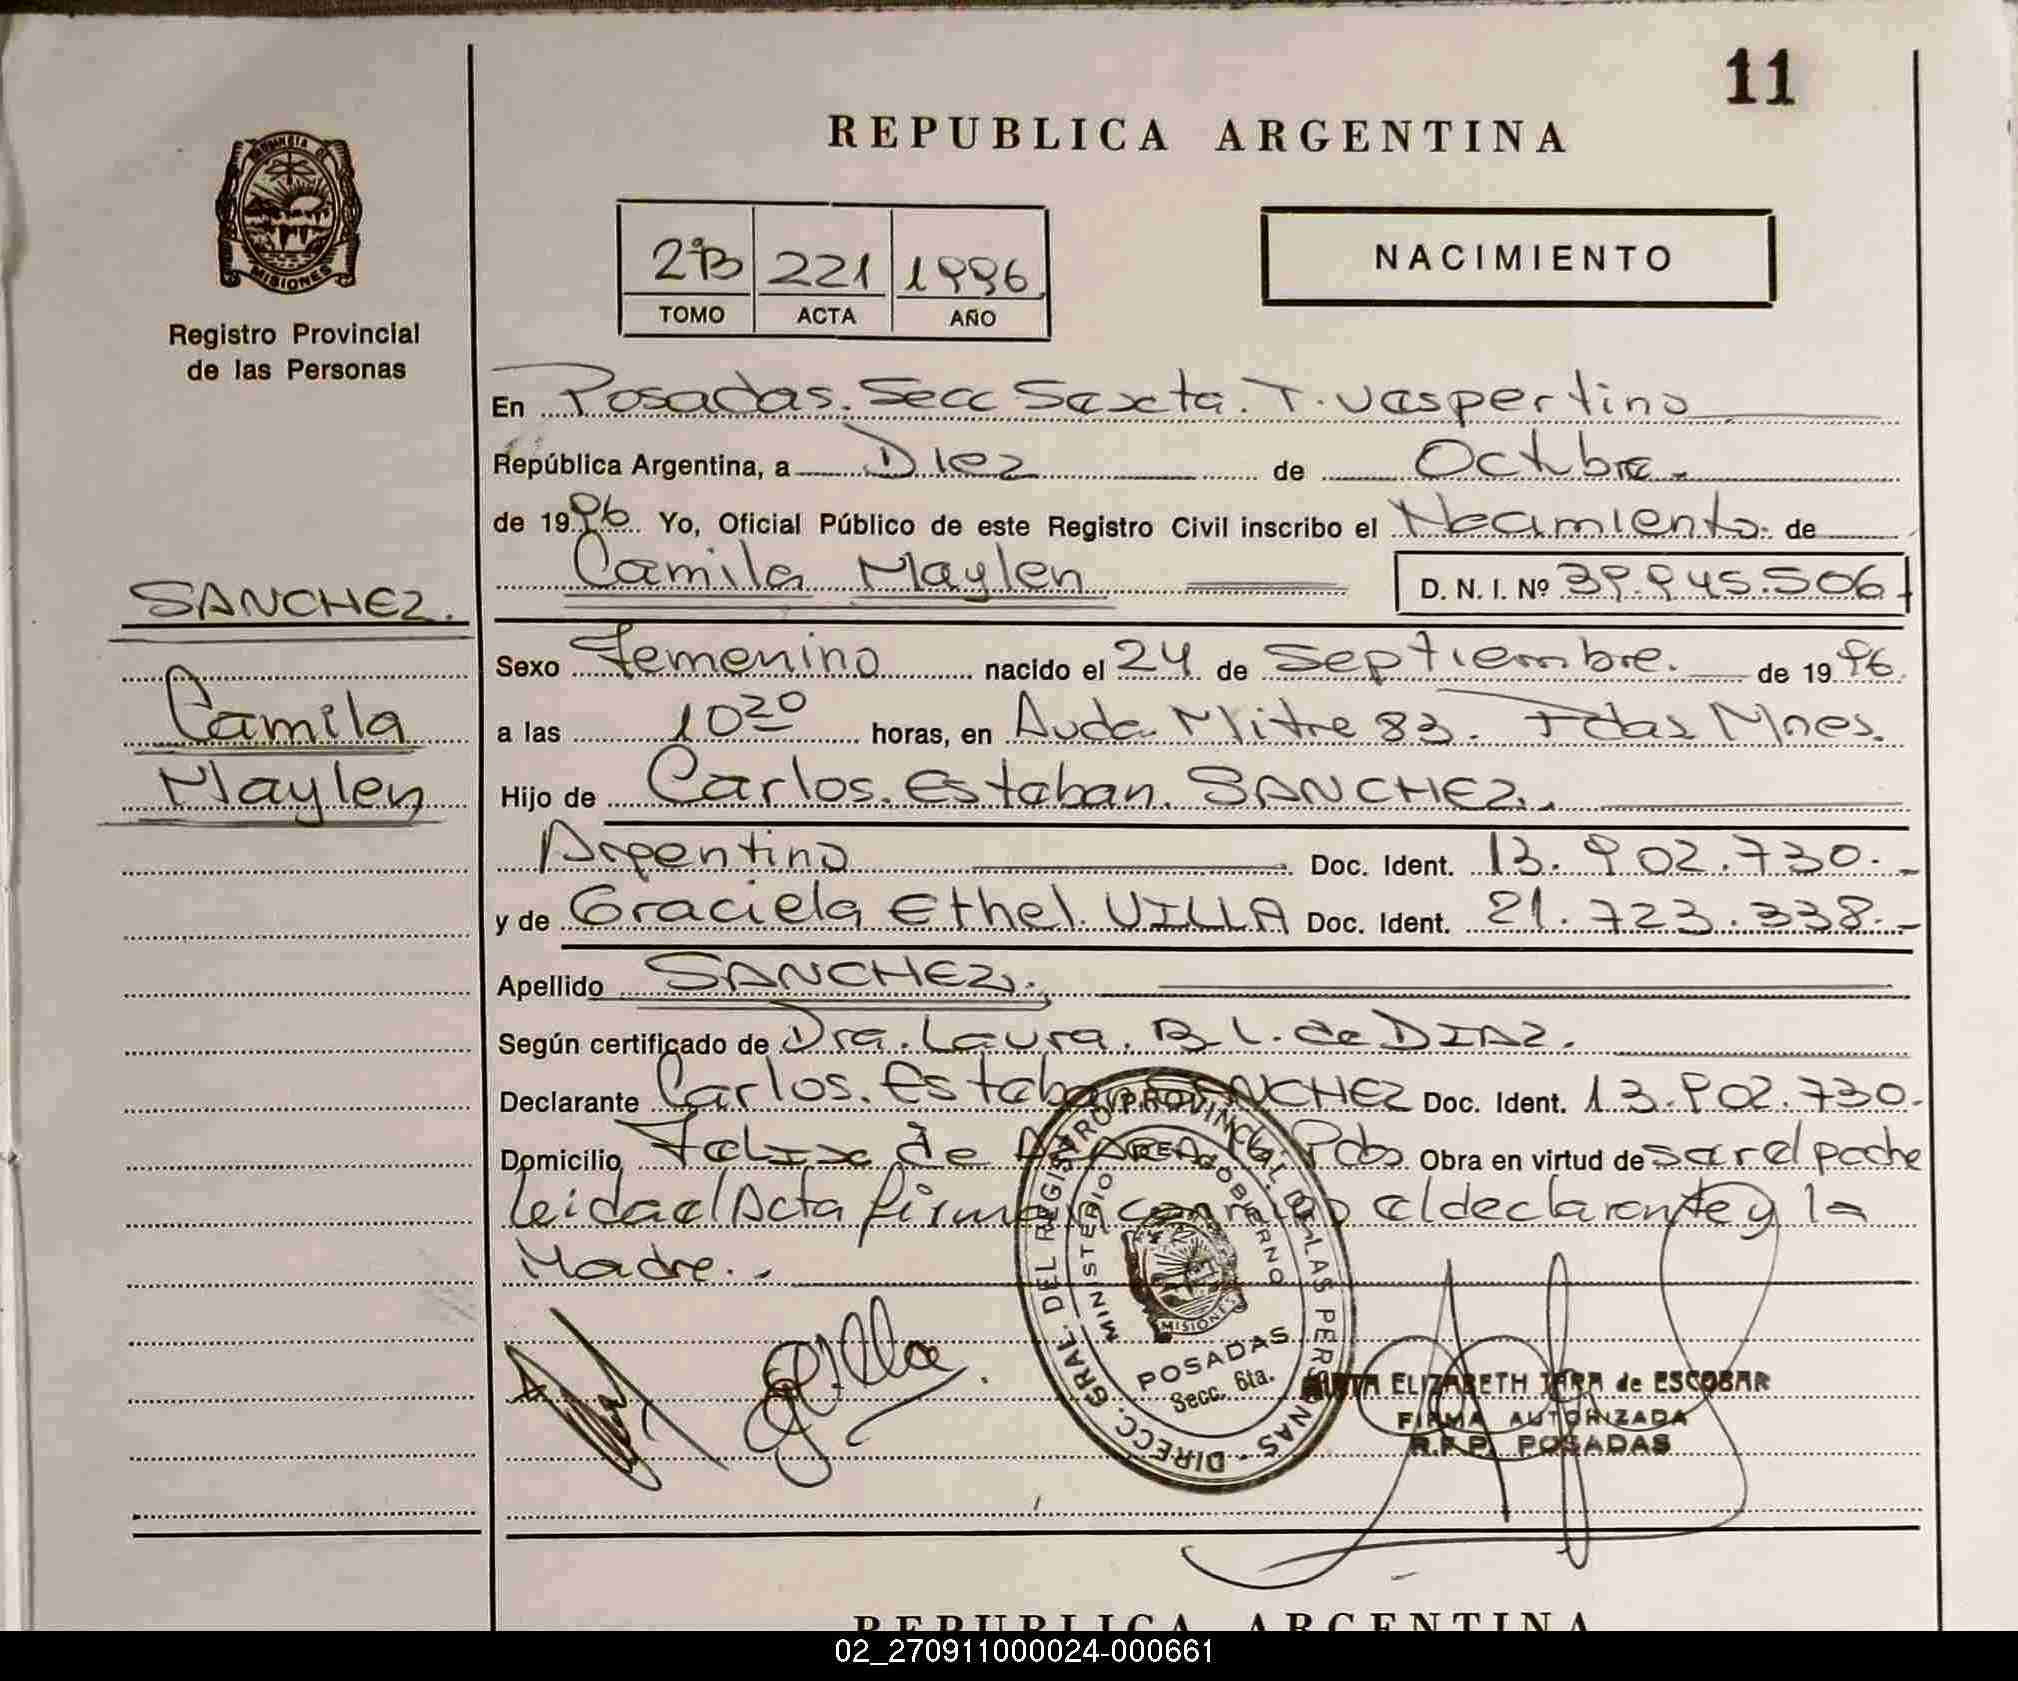 11
REPUBLICA ARGENTINA
PROVINCIA DE
MISIONES
Registro Provincial
de las Personas
2ºB 221 1996
TOMO ACTA AÑO
NACIMIENTO
En Posadas. Secc Sexta. T. Vespertino
República Argentina, a Diez de Octubre.
de 1996. Yo, Oficial Público de este Registro Civil inscribo el Nacimiento de
Camila Maylen D. N. I. Nº 39.945.506
SANCHEZ.
Camila
Maylen
Sexo Femenino nacido el 24 de Septiembre. de 1996.
a las 10 30 horas, en Avda. Mitre 83. Pdas Mnes.
Hijo de Carlos. Esteban. SANCHEZ.
Argentino Doc. Ident. 13.902.730.-
y de Graciela Ethel. VILLA Doc. Ident. 21.723.338.-
Apellido SANCHEZ.
Según certificado de Dra. Laura. B L. de DIAZ.
Declarante Carlos. Esteban SANCHEZ Doc. Ident. 13.902.730.
Domicilio de Pdas Obra en virtud de ser el padre
leida el Acta firman conmigo el declarante y la
Madre.
DIRECC. GRAL. DEL REGISTRO PROVINCIAL DE LAS PERSONAS
MINISTERIO DE GOBIERNO
MISIONES
POSADAS
Secc. 6ta.
ELIZABETH JARA de ESCOBAR
FIRMA AUTORIZADA
R.P.P. POSADAS
REPUBLICA ARGENTINA
02_270911000024-000661